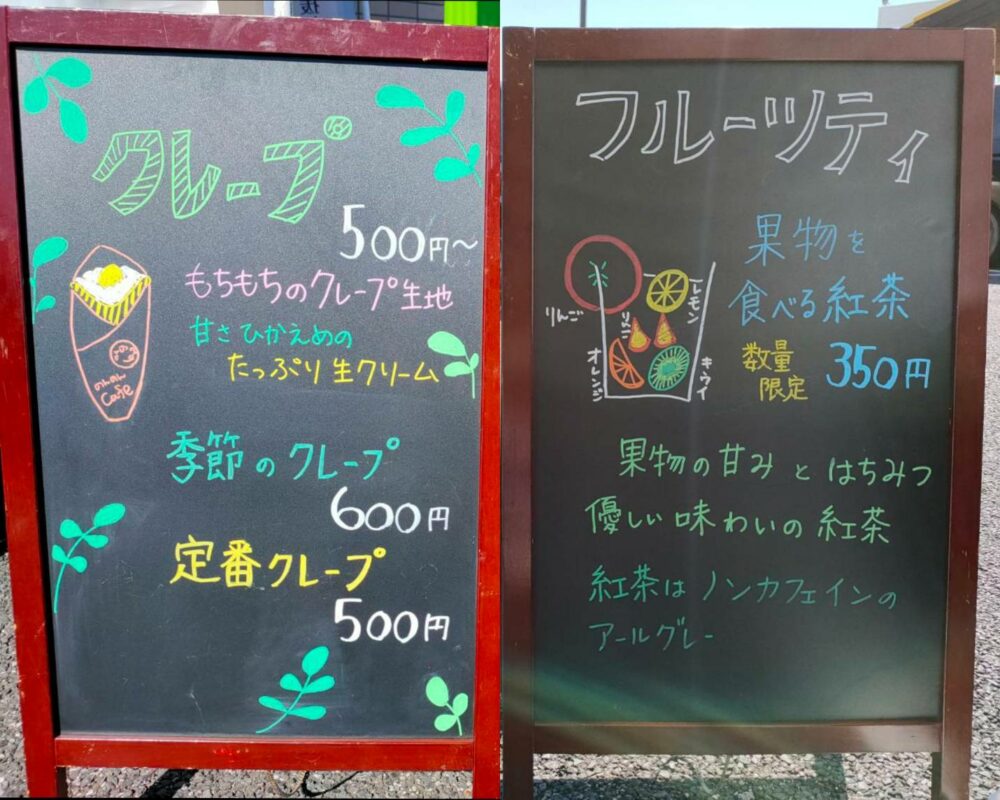 クレープ
500円~
もちもちのクレープ生地
甘さひかえめの
たっぷり生クリーム
のんのん
Cafe
季節のクレープ
600円
定番クレープ
500円
フルーツティ
果物を
食べる紅茶
数量
限定
350円
りんご
りんご
レモン
オレンジ
キウイ
果物の甘みとはちみつ
優しい味わいの紅茶
紅茶はノンカフェインの
アールグレー